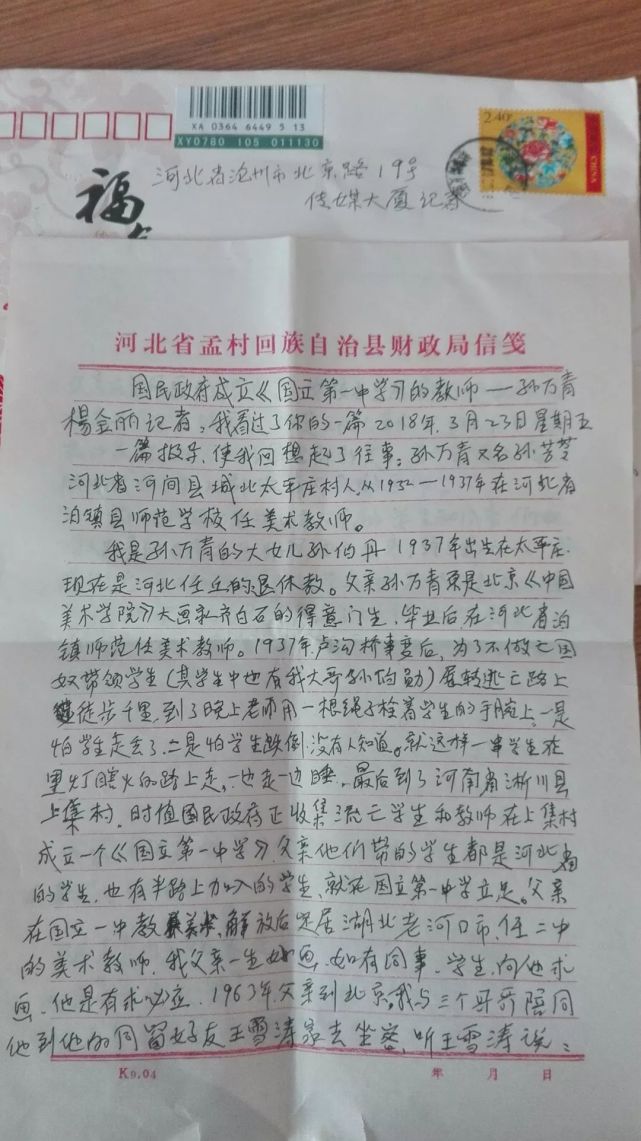 XA 0364 6449 5 13
XY0780 105 011130
2.40
CHINA
河北省沧州市北京路19号
传媒大厦记者
福
河北省孟村回族自治县财政局信笺
国民政府成立《国立第一中学》的教师——孙万青
楊金丽记者，我看过了你的一篇2018年3月23日星期五
一篇报导，使我回想起了往事。孙万青又名孙芳苓
河北省河间县城北太平庄村人，从1932—1937年在河北省
泊镇县师范学校任美术教师。
我是孙万青的大女儿孙伯丹 1937年出生在太平庄.
现在是河北任丘的退休教。父亲孙万青原是北京《中国
美术学院》大画家齐白石的得意门生，毕业后在河北省泊
镇师范任美术教师。1937年卢沟桥事变后，为了不做亡国
奴带领学生(其学生中也有我大哥孙伯勋)展转逃亡路上
徒步千里，到了晚上老师用一根绳子栓着学生的手腕上，一是
怕学生走丢了，二是怕学生跌倒没有人知道。就这样一串学生在
黑灯瞎火的路上走，一边走一边睡，最后到了河南省淅川县
上集村，时值国民政府正收集流亡学生和教师在上集村
成立一个《国立第一中学》，父亲他们带的学生都是河北省
的学生，也有半路上加入的学生，就在国立第一中学立足。父亲
在国立一中教美术，解放后定居湖北老河口市，任二中
的美术教师，我父亲一生如画，如有同事、学生，向他求
画，他是有求必应，1963年父亲到北京，我与三个哥哥陪同
他到他的同窗好友王雪涛家去坐客，听王雪涛说：
K9.04
年 月 日